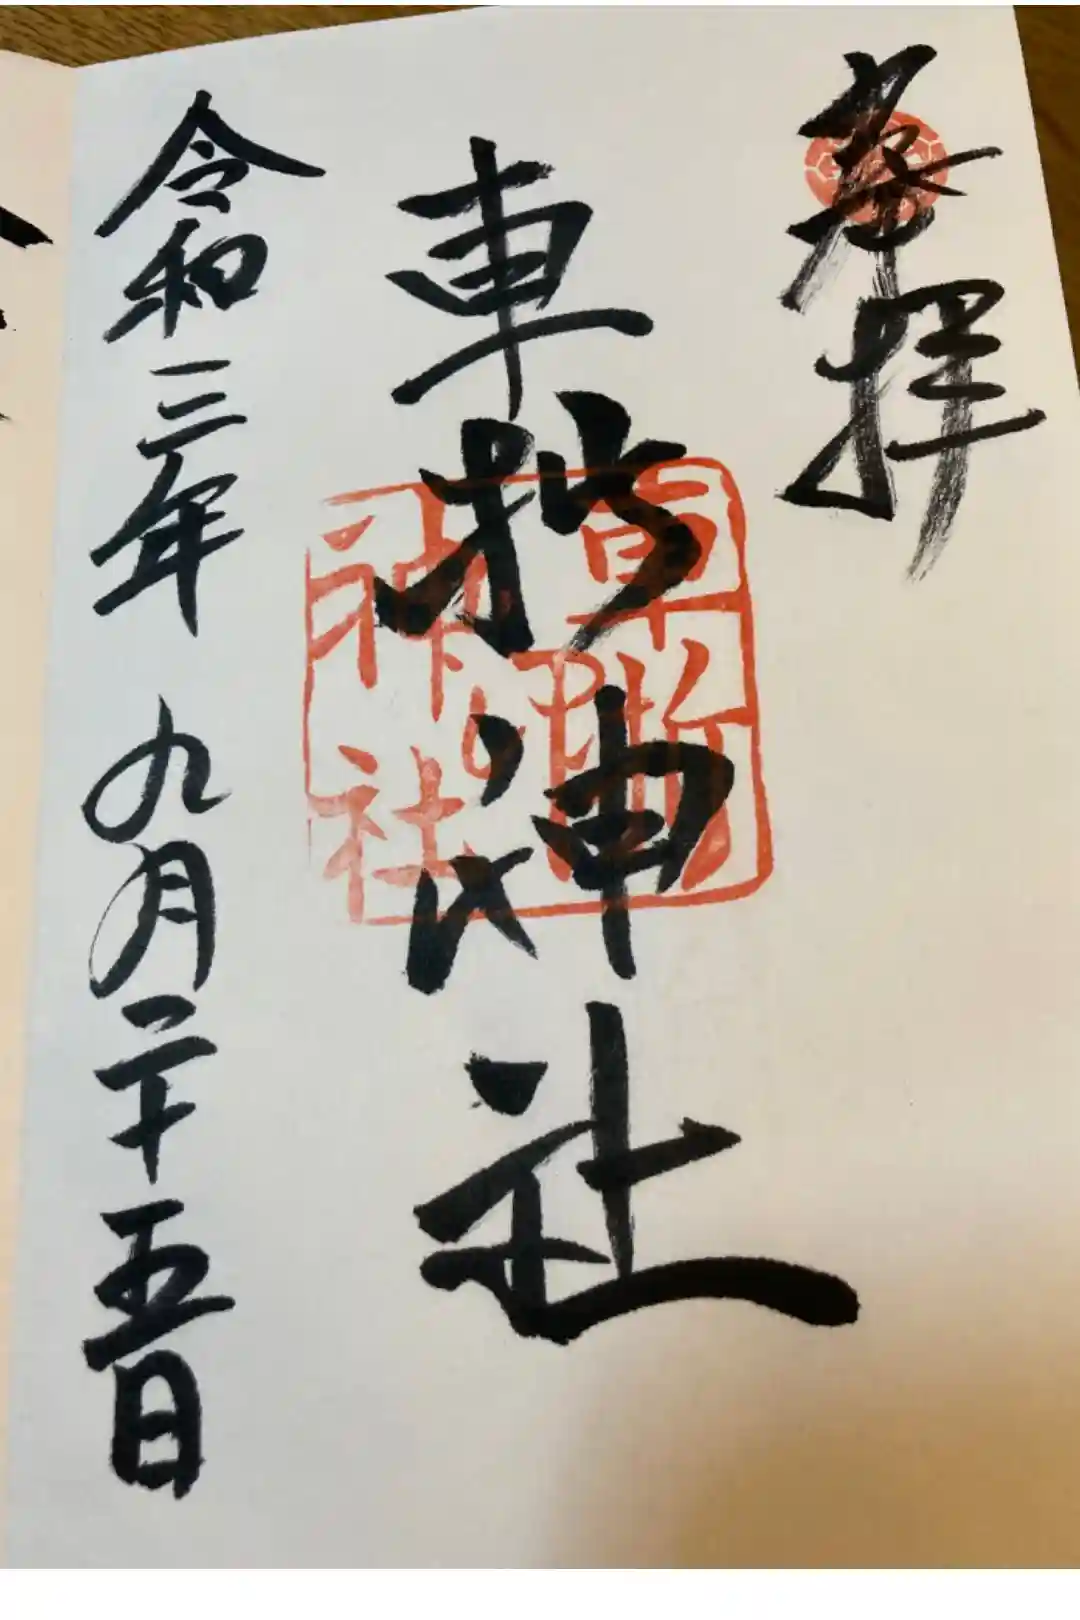 奉拝
車折神社
令和三年九月二十五日
車折
神社